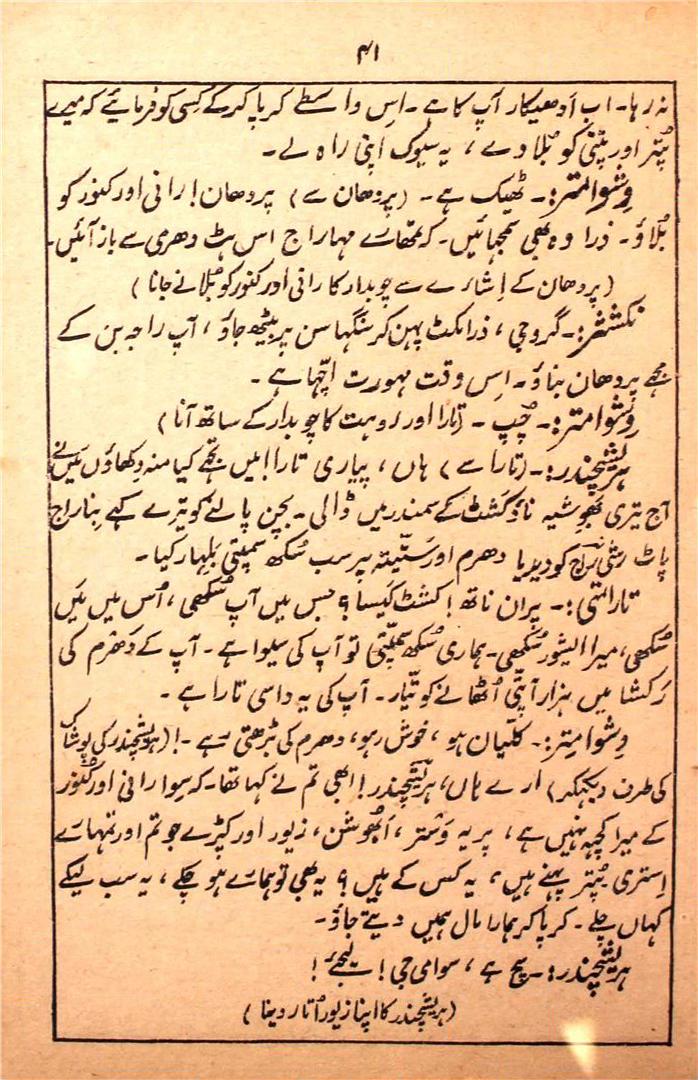 ۴۱
نہ رہا۔ اب ادھیکار آپ کا ہے۔ اِس واسطے کرپا کرکے کِسی کو فرمائیے کہ میرے
پُتر اور پتنی کو بُلا دے ، یہ سیوک اپنی راہ لے۔
وِشوامتر:۔ ٹھیک ہے۔ (پردھان سے) پردھان! رانی اور کنور کو
بُلاؤ۔ ذرا وہ بھی سمجھائیں۔ کہ تمھارے مہاراج اس ہٹ دھرمی سے باز آئیں۔
(پردھان کے اِشارے سے چوبدار کا رانی اور کنور کو بُلانے جانا)
نکشتر:۔ گروجی ، ذرا مکٹ پہن کر سنگھاسن پر بیٹھ جاؤ ، آپ راجہ بن کے
مجھے پردھان بناؤ۔ اِس وقت مہورت اچھا ہے۔
وِشوامتر:۔ چُپ۔ (تارا اور روہت کا چوبدار کے ساتھ آنا)
ہریشچندر:۔ (تارا سے) ہاں ، پیاری تارا! میں تجھے کیا منہ دکھاؤں میَں نے
آج تیری بھوشیہ ناؤ کشٹ کے سمندر میں ڈالی۔ بچن پالنے کو تیرے کہے بِنا راج
پاٹ رشی راج کو دیدیا دھرم اور ستیہ پر سب سُکھ سمپتی بلہار کیا۔
تارامتی:۔ پران ناتھ! کشٹ کیَسا؟ جس میں آپ سُکھی ، اُس میں میَں
سُکھی، میرا ایشور سُکھی۔ ہماری سُکھ سمپتی تو آپ کی سیوا ہے۔ آپ کے دَھرم کی
رَکشا میں ہزار آپتی اُٹھانے کو تیّار۔ آپ کی یہ داسی تارا ہے۔
وِشوامِتر:۔ کلّیان ہو ، خوش رہو، دھرم کی بڑھتی رہے۔! (ہریشچندر کی پوشاک
کی طرف دیکھکر) ارے ہاں، ہریشچندر! ابھی تم نے کہا تھا۔ کہ سِوا رانی اور کنور
کے میرا کچھ نہیں ہے، پر یہ وَستر ، ابھوشن، زیور اور کپڑے جو تم اور تمہارے
اِستری پُتر پہنے ہیں، یہ کس کے ہیں؟ یہ بھی تو ہمارے ہو چکے ، یہ سب لیکے
کہاں چلے۔ کرپا کر ہمارا مال ہمیں دیتے جاؤ۔
ہریشچندر:۔ سچ ہے ، سوامی جی! لیجئے!
(ہریشچندر کا اپنا زیور اُتار دینا)